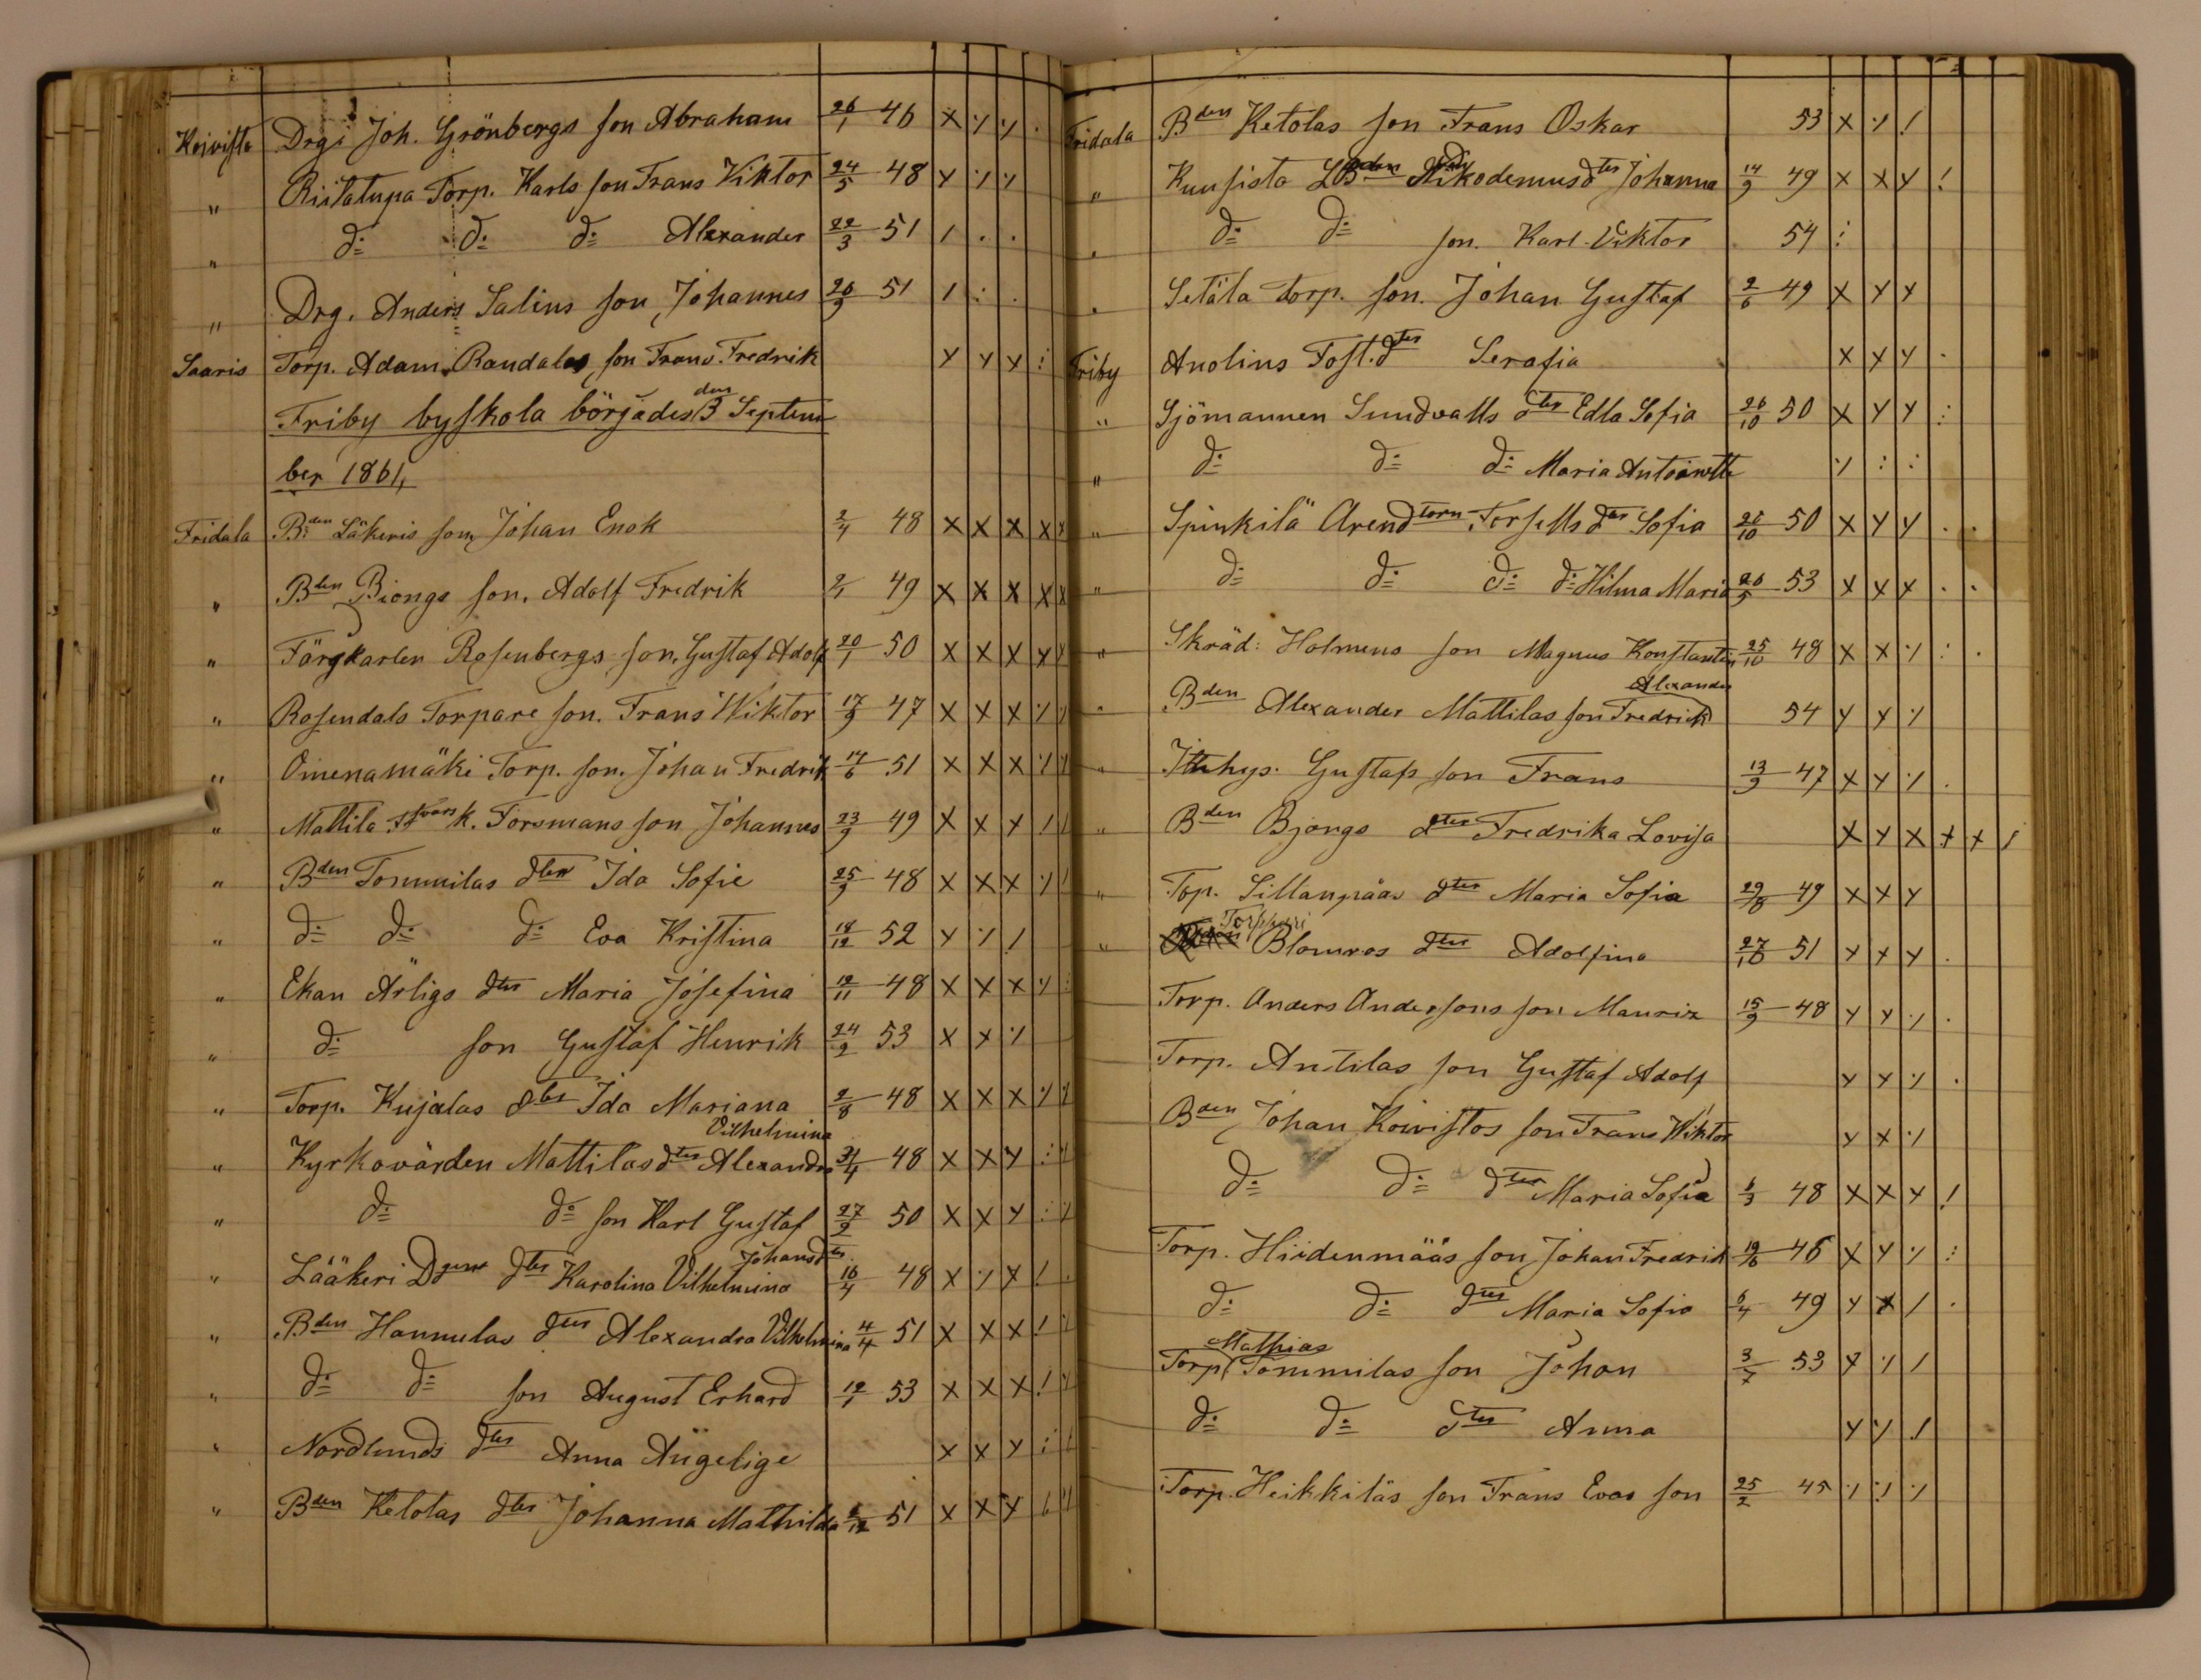 Koivisto Drg: Joh. Grönbergs son Abraham 26/1 46 x ·/ ·/ ·
" Riitatupa Torp. Karls son Frans Viktor 24/5 48 x ·/ ·/
" d:o d:o d:o Alexander 22/3 51 / · ·
" Drg. Anders Salins son Johannes 20/9 51 / : ·
Saaris Torp. Adam Randalas son Frans Fredrik x x x :
Friby byskola börjades den 3 Septem
ber 1861,
Fridala B:den Läkeris son Johan Enok 2/4 48 x x x x x
" Bden Biongs son, Adolf Fredrik 2/1 49 x x x x x
" Färgkarlen Rosenbergs son, Gustaf Adolf 20/1 50 x x x x
" Rosendals Torpare son. Frans Wiktor 17/9 47 x x x ·/ ·/
" Omenamäki Torp. son. Johan Fredrik 14/6 51 x x x ·/ ·/
" Mattila Forsmans son Johannes 23/9 49 x x x / /
" Bden Tommilas dter Ida Sofie 25/9 48 x x x ·/ /
" d:o d:o d:o Eva Kristina 18/12 52 x ·/ /
" Ekan Ärligs dter Maria Josefina 12/11 48 x x x ·/ :
" d:o son Gustaf Henrik 24/2 53 x x ·/
" Torp. Kujalas dter Ida Mariana 2/8 48 x x x ·/ ·/
Vilhelmina
" Kyrkovärden Mattilas dter Alexandra 48 x x x : ·/
" d:o d:o son Karl Gustaf 27/2 50 x x x : ·/
Johansdtr.
" Lääkeri dter Karolina Vilhelmina 16/4 48 x ·/ x / ·
" Bden Hannulas dter Alexandra Vilhelmina 4/4 51 x x x / ·/
" d:o d:o son August Erhard 12/1 53 x x x / ·/
" Nordlunds dter Anna Ängelige x x x : /
" Bden Ketolas dter Johanna Mathilda 6/12 51 x x x / ·/
Fridala Bden Ketolas son Frans Oskar 53 x ·/ /
" Kuusisto Nikodemus dter Johanna 14/9 49 x x x !
" d:o d:o son. Karl Viktor 54 :
" Setäla torp. son. Johan Gustaf 2/6 49 x x x
Friby Anolins Fost. dter Serafia x x x ·
" Sjömannen Sundvalls dter Edla Sofia 26/10 50 x x x :
" d:o d:o d:o Maria Antoinette ·/ : :
" Spinkilä Arendtorn Forsells dter Sofia 50 x x x · ·
" d:o d:o d:o d:o Hilma Maria 53 x x x · ·
" Skräd: Holmens son Magnus Konstantin 25/10 48 x x ·/ : ·
Alexander
" Bden Alexander Mattilas son Fredrick 54 x x ·/
" Itthys: Gustafs son Frans 13/9 47 x x ·/ ·
" Bden Bjongs dter Fredrika Lovisa x x x x x /
" Top. Sillanpääs dter Maria Sofia 49 x x x
Torppari
" Blomros dter Adolfina 27/10 51 x x x ·
Torp. Anders Andersons son Mauriz 15/9 48 x x ·/ ·
Torp. Antilas son Gustaf Adolf x x ·/ ·
Bden Johan Koivistos son Frans Wiktor x x ·/
d:o d:o dter Maria Sofia 6/3 48 x x x !
Torp. Hiidenmääs son Johan Fredrik 46 x x ·/ :
d:o d:o dter Maria Sofia 6/4 49 x x / ·
Mathias
Torp. Tommilas son Johan 3/7 53 x ·/ /
d:o d:o dter Anna x ·/ /
Torp. Heikkiläs son Frans Evas son 25/2 45 ·/ ·/ ·/